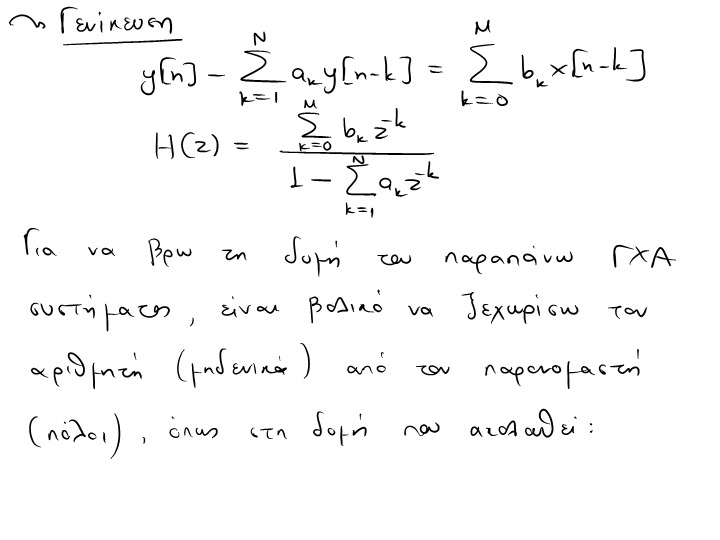 ~> Γενίκευση
y[n] - \sum_{k=1}^{N} a_k y[n-k] = \sum_{k=0}^{M} b_k x[n-k]
H(z) = \frac{\sum_{k=0}^{M} b_k z^{-k}}{1 - \sum_{k=1}^{N} a_k z^{-k}}
Για να βρω τη δομή του παραπάνω ΓΧΑ
συστήματος, είναι βολικό να ξεχωρίσω τον
αριθμητή (μηδενικά) από τον παρονομαστή
(πόλοι), όπως στη δομή που ακολουθεί: